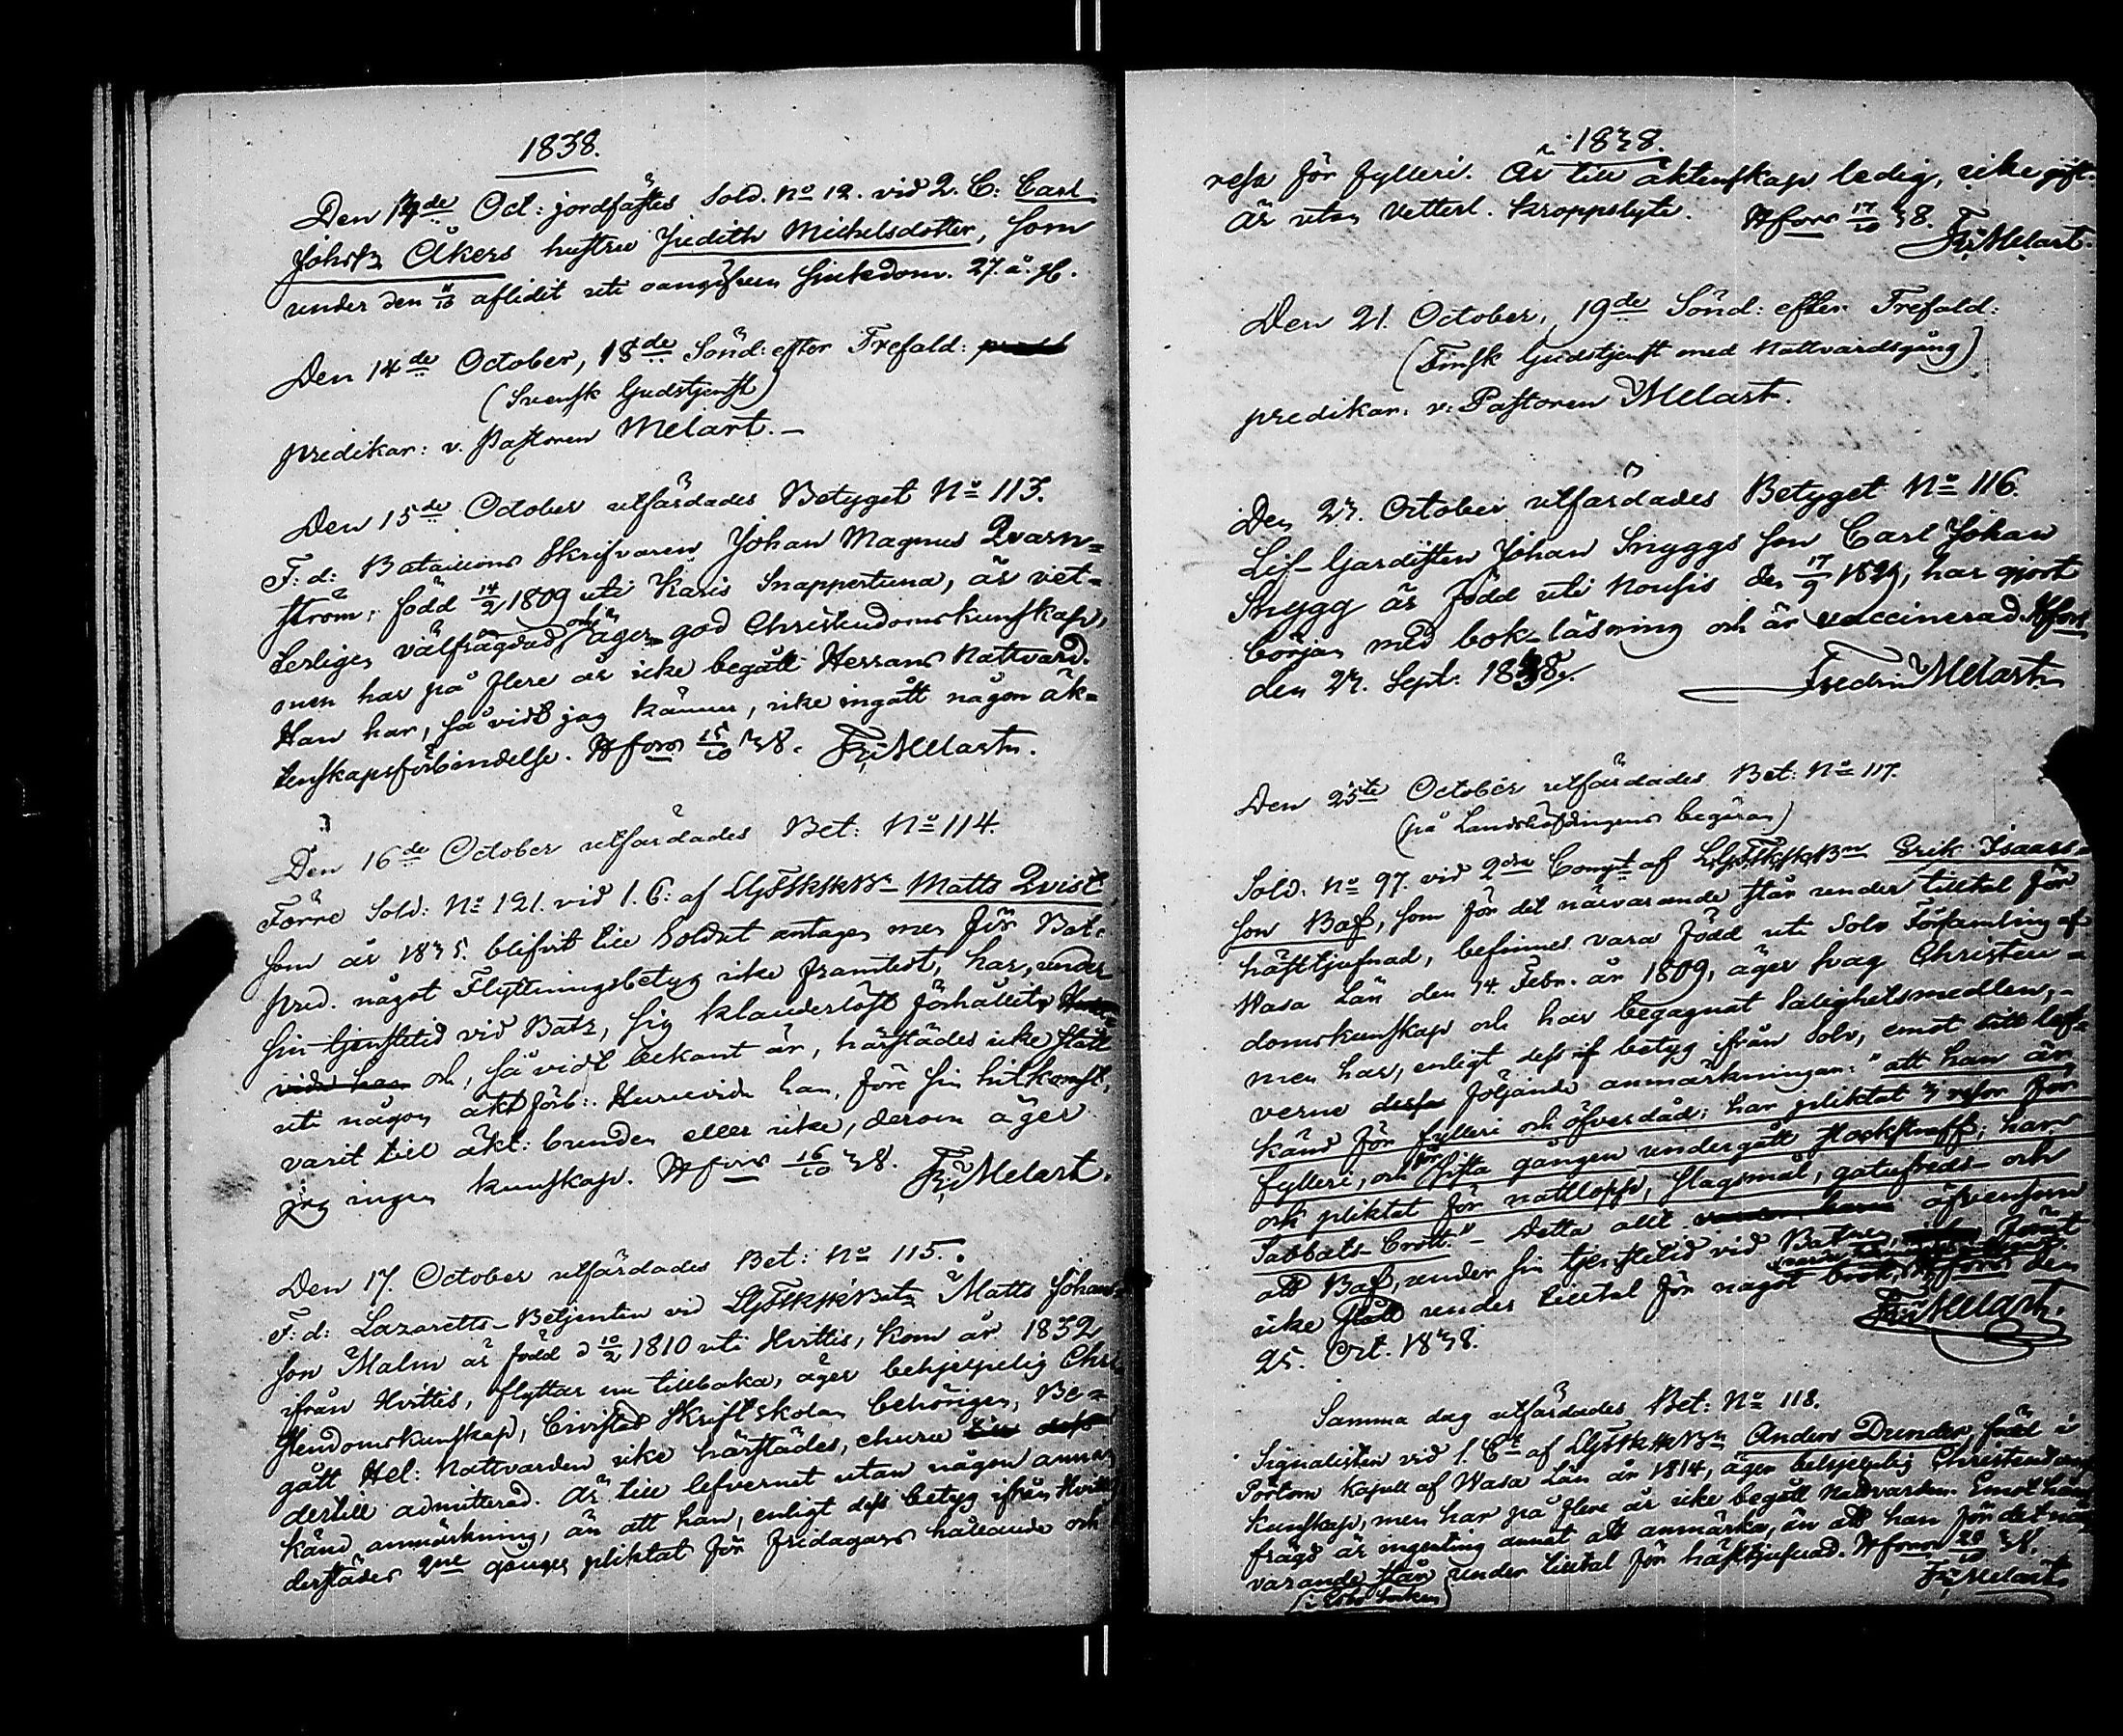 1838.
Den 14de Oct: jordfästes Sold. No 12. vid 2. C: Carl
Johsſn Åkers hustru Judith Michelsdotter, som
under den 11/10 aflidit uti oangifven sjukdom. 27. å. gl.
Den 14de October, 18de Sönd: efter Trefald:
(Svensk Gudstjenst)
predikar: v. Pastoren Melart. —
Den 15de October utfärdades Betyget No 113.
F: d: Bataillons Skrifvaren Johan Magnus Qvarn=
ström, född 14/2 1809 uti Karis Snappertuna, är vet-
terligen välfrägdad, och äger god Christendomskunskap,
men har på flere år icke begått Herrans Nattvard.
Han har, så vidt jag känner, icke ingått någon äk=
tenskapsförbindelse. Hfors 15/10 38. Fr: Melart.
Den 16de October utfärdades Bet: No 114.
Förre Sold: No 121. vid 1. C: af LGFSkSkBn Matts Qvist
som år 1835. blifvit till Soldat antagen men för Bat.
pred. något Flyttningsbetyg icke framtedt, har, under
sin tjenstetid vid Batn, sig klanderlöst förhållit,
vida han och, så vidt bekant är, härstädes icke stått
uti någon äktförb:. Huruvida han, före sin hitkomst,
varit till äkt: bunden eller icke, derom äger
jag ingen kunskap. Hfors 16/10 38. Fr: Melart.
Den 17. October utfärdades Bet: No 115.
F: d: Lazaretts-Betjenten vid LGFSkSkBatn Matts Johans=
son Malm är född d 10/2 1810 uti Hvittis, kom år 1832
ifrån Hvittis, flyttar nu tillbaka, äger behjelpelig Chri-
stendomskunskap, bivistad Skriftskolan behörigen, Be=
gått Hel: Nattvarden icke härstädes, ehuru till dess
dertill admitterad. Är till lefvernet utan någon annan
känd anmärkning, än att han, enligt dess betyg ifrån Hvittis
derstädes 2ne gånger pliktat för fridagars hållande och
1838.
resa för fylleri. Är till äktenskap ledig, icke gift.
Är utan vetterl. kroppslyte. Hfors 17/10 38.
Fr: Melart.
Den 21. October, 19de Sönd: efter Trefald:
(Finsk Gudstjenst med Nattvardsgång)
predikar: v: Pastoren Melart.
Den 23. October utfärdades Betyget No 116.
Lif-Gardisten Johan Snyggs son Carl Johan
Snygg är född uti Nousis den 17/9 1829, har gjort
början med bok-läsning och är vaccinerad. Hfors
den 23. Sept. 1838.
Fredric Melart.
Den 25te October utfärdades Bet: No 117.
(på Landshöfdingens begäran)
Sold. No 97. vid 2dra Compt af LGFSkSkBn Erik Isaacs=
son Bas, som för det närvarande står under tilltal för
häststjufnad, befinnes vara född uti Solv Församling af
Wasa Län den 14. Febr. år 1809, äger svag Christen=
domskunskap och har begagnat Salighetsmedlen,-
men har, enligt dess betyg ifrån Solv, emot till lef-
verne dessa följande anmärkningar: "att han är
känd för fylleri och öfverdåd; har pliktat 3 resor för
fylleri, och för sista gången undergått Stockstraff; har
och pliktat för nattlopp, slagsmål, gatufreds- och
Sabbats-brott." - Detta allt äfvensom
att Bas, under sin tjenstetid vid Batne,
icke stått under tilltal för något brott. Hfors den
25. Oct. 1838.
Fr: Melart.
Samma dag utfärdades Bet: No 118.
Signalisten vid 1. Ct af LGFSkSkBn Anders Dunder född i
Pörtom Kapell af Wasa Län år 1814, äger behjelplig Christendoms
kunskap, men har på flere år icke begått Nattvarden. Emot hans
frägd är ingenting annat att anmärka, än att han för det när-
varande står under tilltal för häststjufnad. Hfors 26/10 38.
Fr: Melart